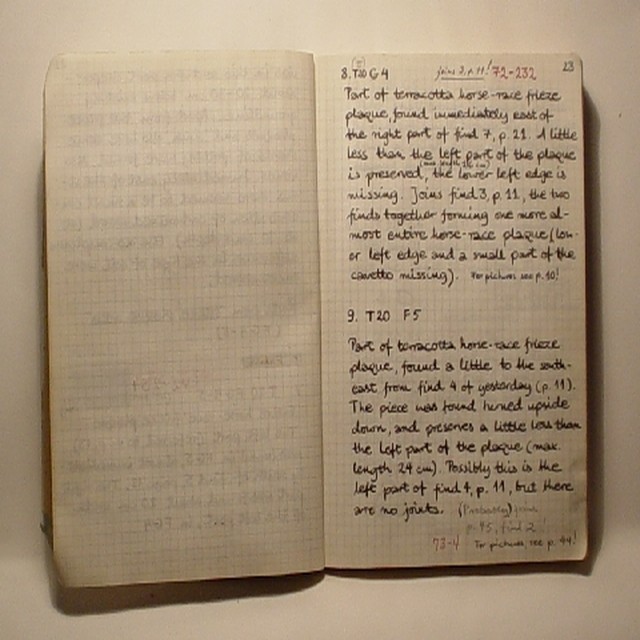 23
8. T20 G4 joins 3, p. 11! 72-232
Part of terracotta horse-race frieze
plaque, found immediately east of
the right part of find 7, p. 21. A little
less than the left part of the plaque
is preserved, the lower left edge is
missing. Joins find 3, p. 11, the two
finds together forming one more al-
most entire horse-race plaque (low-
er left edge and a small part of the
cavetto missing). For pictures see p. 10!
9. T20 F5
Part of terracotta horse-race frieze
plaque, found a little to the south-
east from find 4 of yesterday (p. 11).
The piece was found turned upside
down, and preserves a little less than
the left part of the plaque (max.
length 24 cm). Possibly this is the
left part of find 4, p. 11, but there
are no joints. (Probably) joins
p. 45, find 2!
73-4 For pictures, see p. 44!